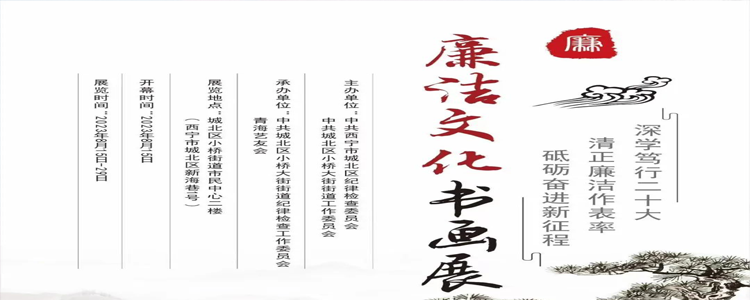 廉
深学笃行二十大
清正廉洁作表率
砥砺奋进新征程
廉洁文化书画展
主办单位:中共西宁市城北区纪律检查委员会
中共城北区小桥大街街道工作委员会
承办单位:中共城北区小桥大街街道纪律检查工作委员会
青海艺友会
展览地点:城北区小桥街道市民中心二楼
(西宁市城北区新海巷1号)
开幕时间:2023年6月16日
展览时间:2023年6月16日-29日